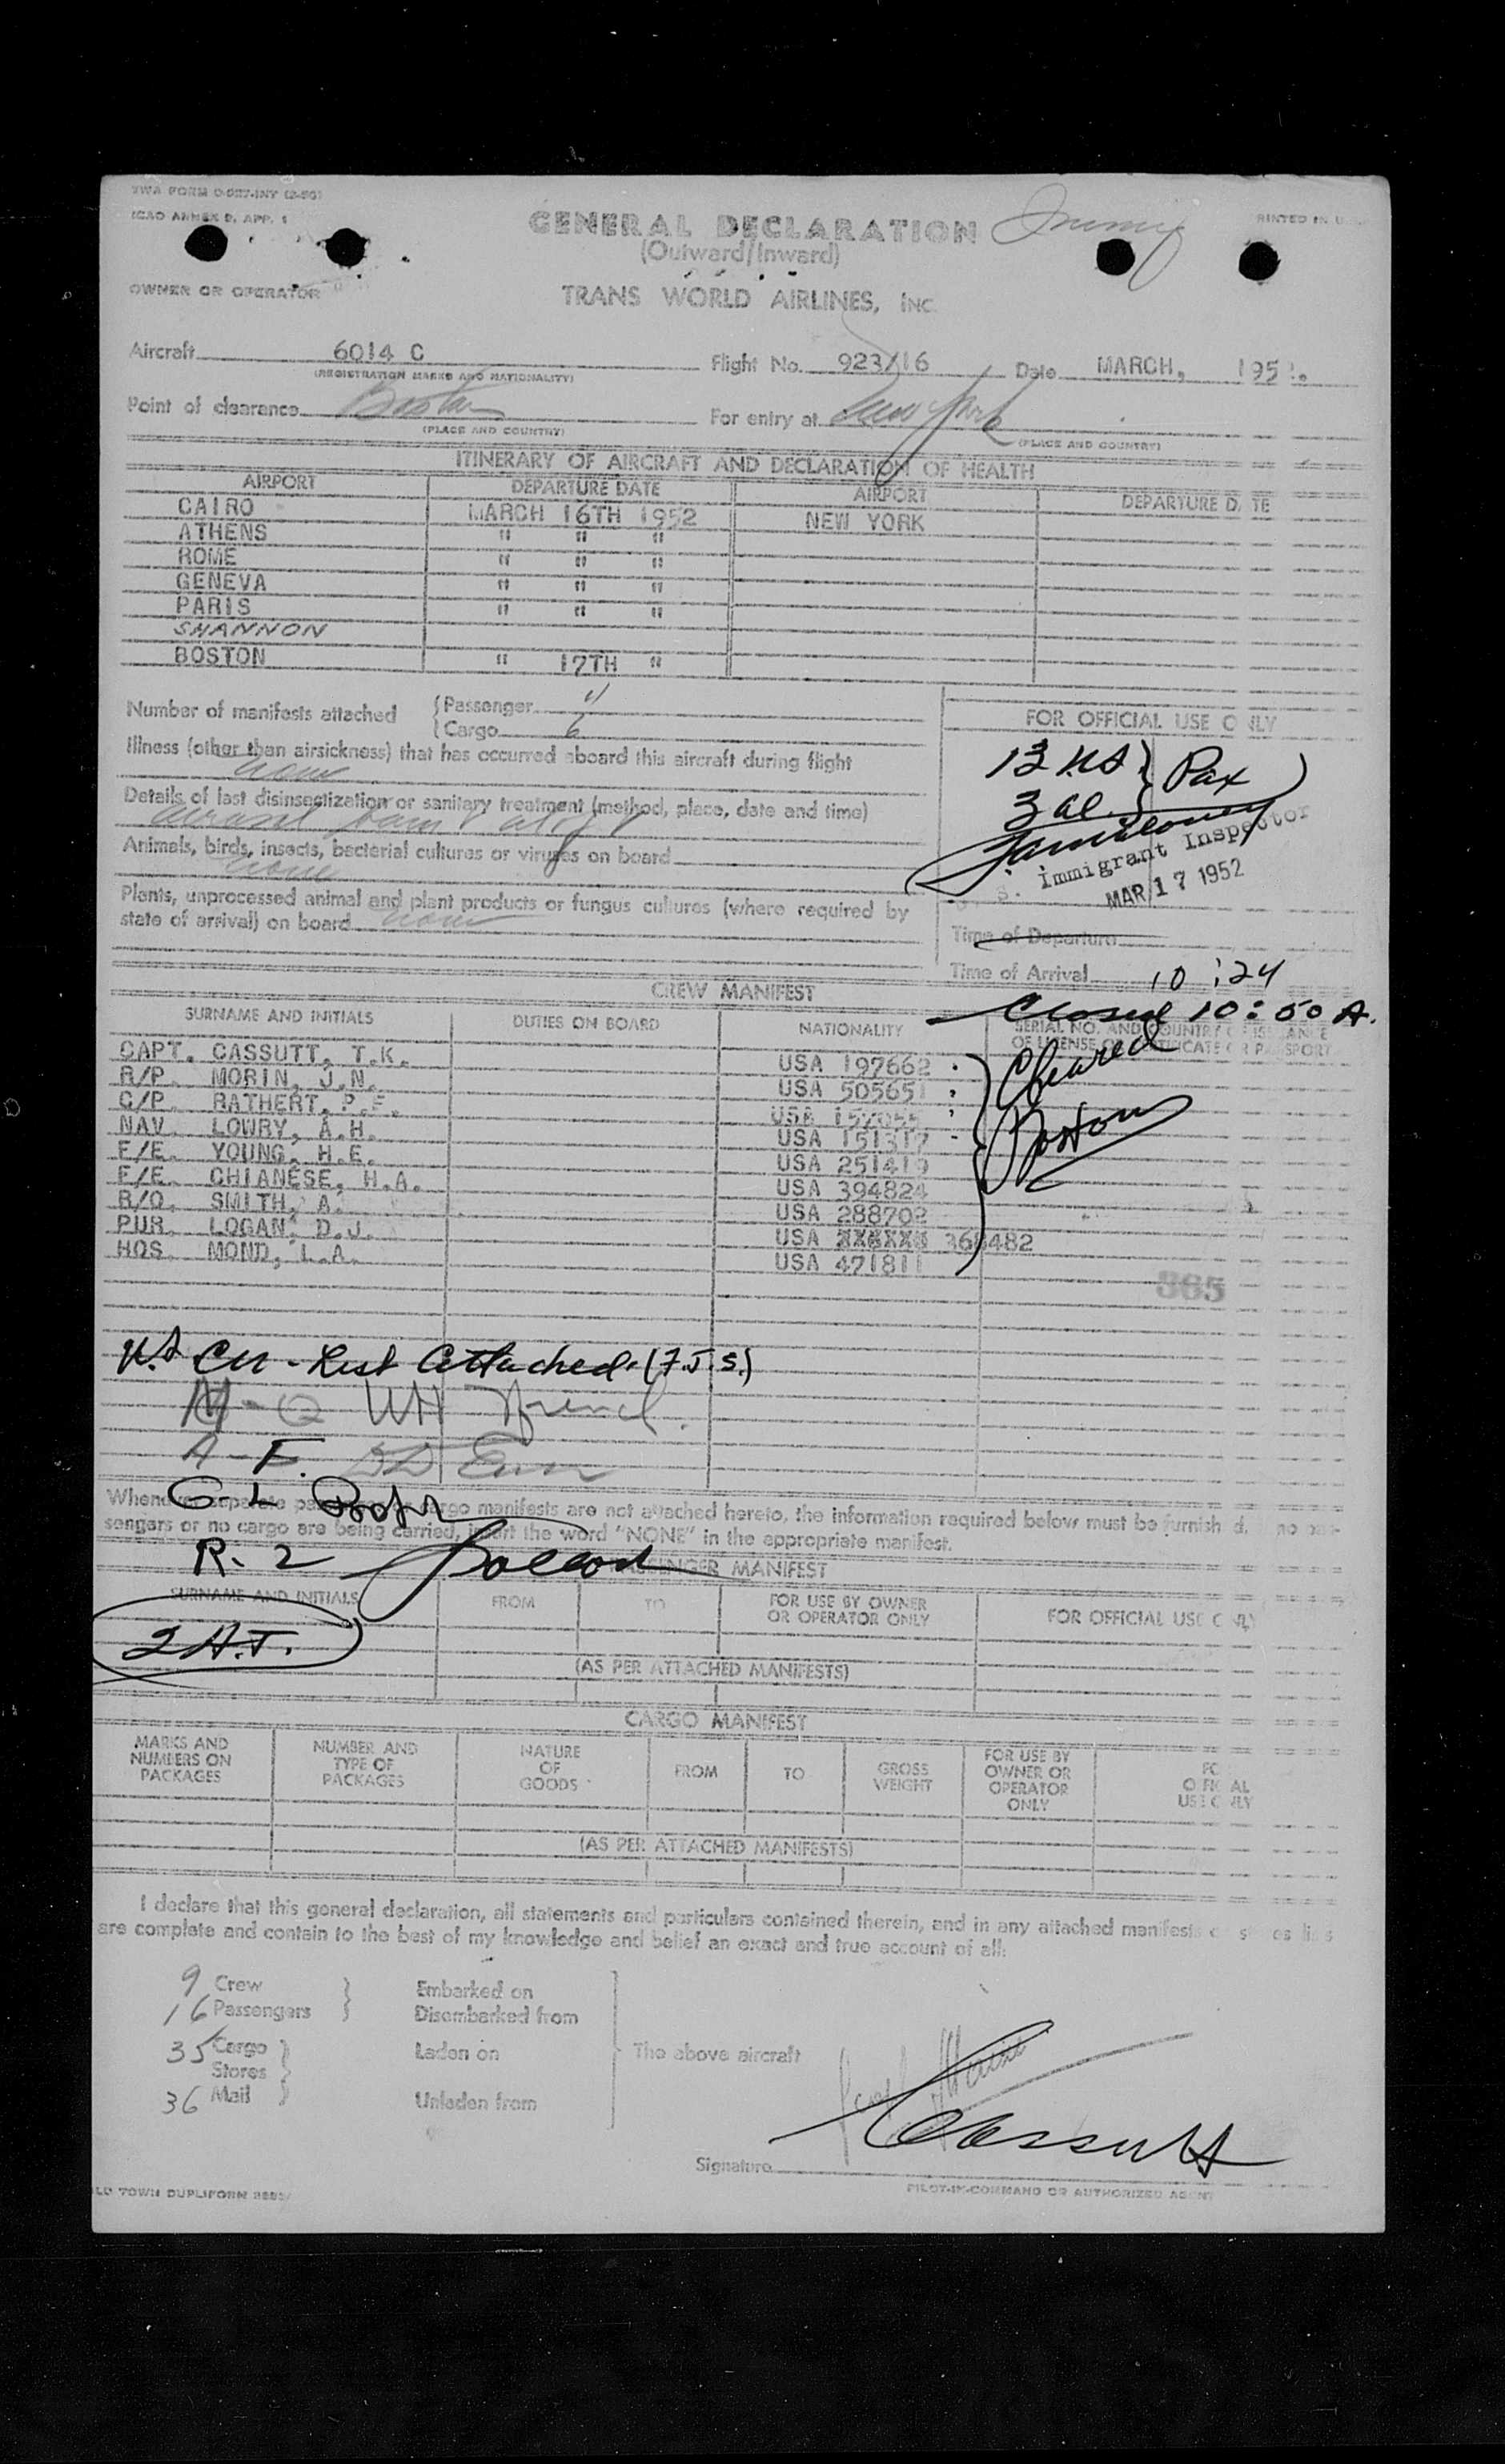 TWA FORM
ICAO ANNEX 9, APP. 1
GENERAL DECLARATION
PRINTED IN U.
(Outward/Inward)
OWNER OR OPERATOR
TRANS WORLD AIRLINES, INC.
Aircraft 6014 C Flight No. 923/16 Date MARCH, 195
(REGISTRATION MARKS AND NATIONALITY)
Point of clearance Boston For entry at New York
(PLACE AND COUNTRY) (PLACE AND COUNTRY)
ITINERARY OF AIRCRAFT AND DECLARATION OF HEALTH
AIRPORT DEPARTURE DATE AIRPORT DEPARTURE D TE
CAIRO MARCH 16TH 1952 NEW YORK
ATHENS " " "
ROME " " "
GENEVA " " "
PARIS " " "
SHANNON
BOSTON " 17TH "
Number of manifests attached
Passenger
Cargo 6
FOR OFFICIAL USE O NLY
Illness (other than airsickness) that has occurred aboard this aircraft during flight
none
13 US
3 al
Pax
Details of last disinsectization or sanitary treatment (method, place, date and time)
Animals, birds, insects, bacterial cultures or viruses on board
none
S. Immigrant Inspector
MAR 17 1952
Plants, unprocessed animal and plant products or fungus cultures (where required by
state of arrival) on board none
Time of Departure
Time of Arrival 10:24
Closed 10:50 A.
CREW MANIFEST
SURNAME AND INITIALS DUTIES ON BOARD NATIONALITY SERIAL NO. AND COUNTRY OF ISSUANCE
OF LICENSE OR CERTIFICATE OR PASSPORT
CAPT. CASSUTT, T.K. USA 197662
R/P. MORIN, J.N. USA 505651
C/P. RATHERT, P.E. USA
NAV. LOWRY, A.H. USA 151317
F/E. YOUNG, H.E. USA 251419
F/E. CHIANESE, H.A. USA 394824
R/O. SMITH, A. USA 288702
PUR. LOGAN, D.J. USA XXXXXX 368482
HOS. MOND, L.A. USA 471811
Cleared
Boston
365
U.S Cit - List Attached (F.J.S.)
M - Q WH French
A - F.
G-L
Whenever separate passenger or cargo manifests are not attached hereto, the information required below must be furnish d. no pas-
sengers or no cargo are being carried, insert the word "NONE" in the appropriate manifest.
R-Z
PASSENGER MANIFEST
SURNAME AND INITIALS FROM TO FOR USE BY OWNER
OR OPERATOR ONLY FOR OFFICIAL USE O NLY
2 A.T.
(AS PER ATTACHED MANIFESTS)
CARGO MANIFEST
MARKS AND
NUMBERS ON
PACKAGES
NUMBER AND
TYPE OF
PACKAGES
NATURE
OF
GOODS
FROM
TO
GROSS
WEIGHT
FOR USE BY
OWNER OR
OPERATOR
ONLY
FO
OFFIC AL
USE O NLY
(AS PER ATTACHED MANIFESTS)
I declare that this general declaration, all statements and particulars contained therein, and in any attached manifests
are complete and contain to the best of my knowledge and belief an exact and true account of all:
9 Crew
16 Passengers
Embarked on
Disembarked from
35 Cargo
Stores
36 Mail
Laden on
Unladen from
The above aircraft
Cassutt
Signature
PILOT-IN-COMMAND OR AUTHORIZED AGENT
LD TOWN DUPLIFORM